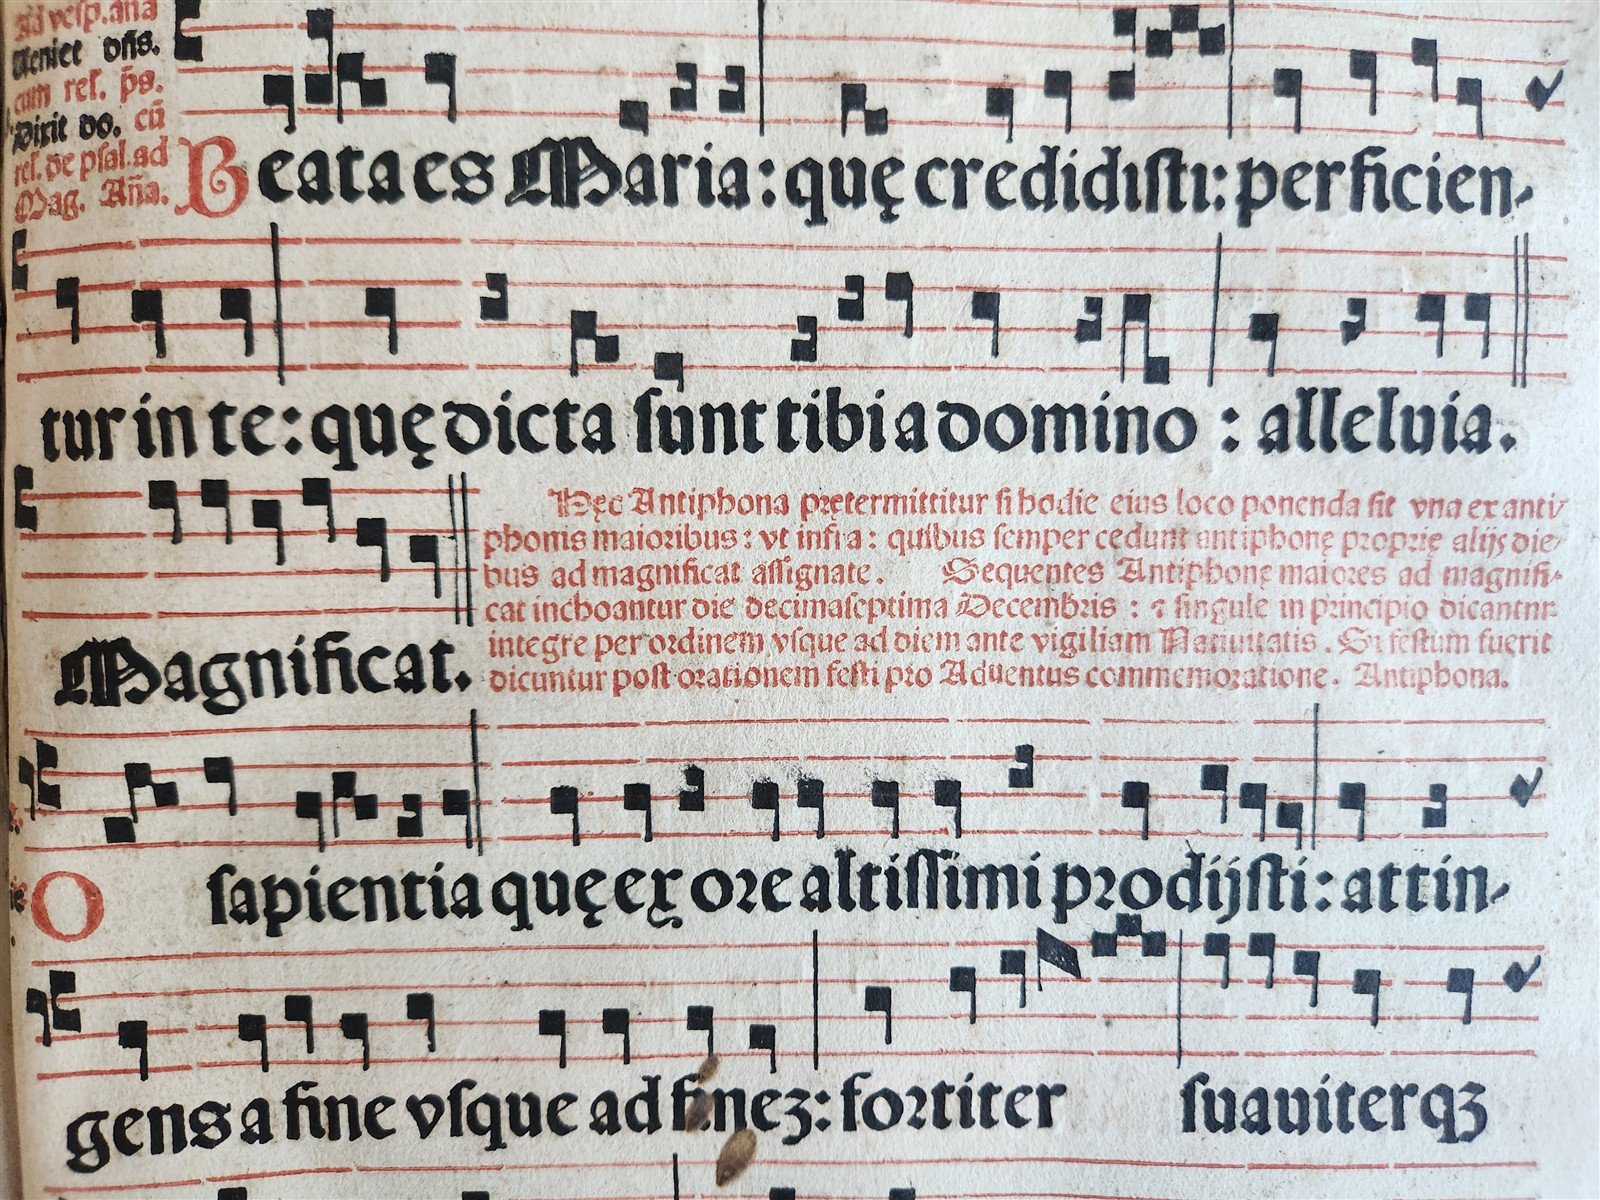 ad vesp. aña
Ueniet dñs.
cum rel. p̄s.
Dixit do. cū
rel. de psal. ad
Mag. Aña.
Beata es Maria: quę credidıſtı: perficien-
tur in te: quę dicta ſunt tibi a domino : alleluia.
Hęc Antiphona prętermittitur ſi hodie eius loco ponenda ſit vna ex anti-
phonis maioribus: vt infra: quibus ſemper cedunt antiphonę proprię alijs die-
bus ad magnificat aſſignate. Sequentes Antiphonę maiores ad magnifi-
cat inchoantur die decimaſeptima Decembris : ⁊ ſingule in principio dicantur
integre per ordinem vſque ad diem ante vigiliam Natiuitatis. Si feſtum fuerit
dicuntur poſt orationem feſti pro Aduentus commemoratione. Antiphona.
Magnificat.
O ſapientia quę ex ore altiſſimi prodijſti: attin-
gens a fine vſque ad fineꝫ: fortiter ſuauiterqꝫ